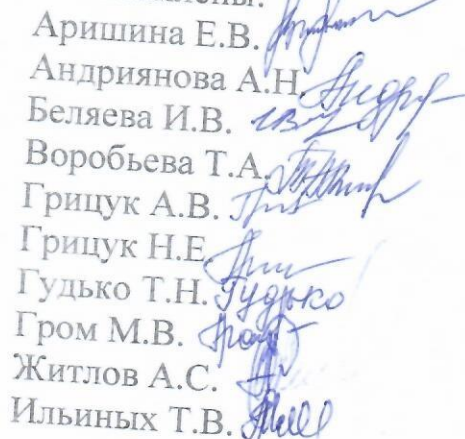 Аришина Е.В.
Андриянова А.Н. Андр
Беляева И.В.
Воробьева Т.А.
Грицук А.В. Гриц
Грицук Н.Е. Гриц
Гудько Т.Н. Гудько
Гром М.В. Гром
Житлов А.С.
Ильиных Т.В.